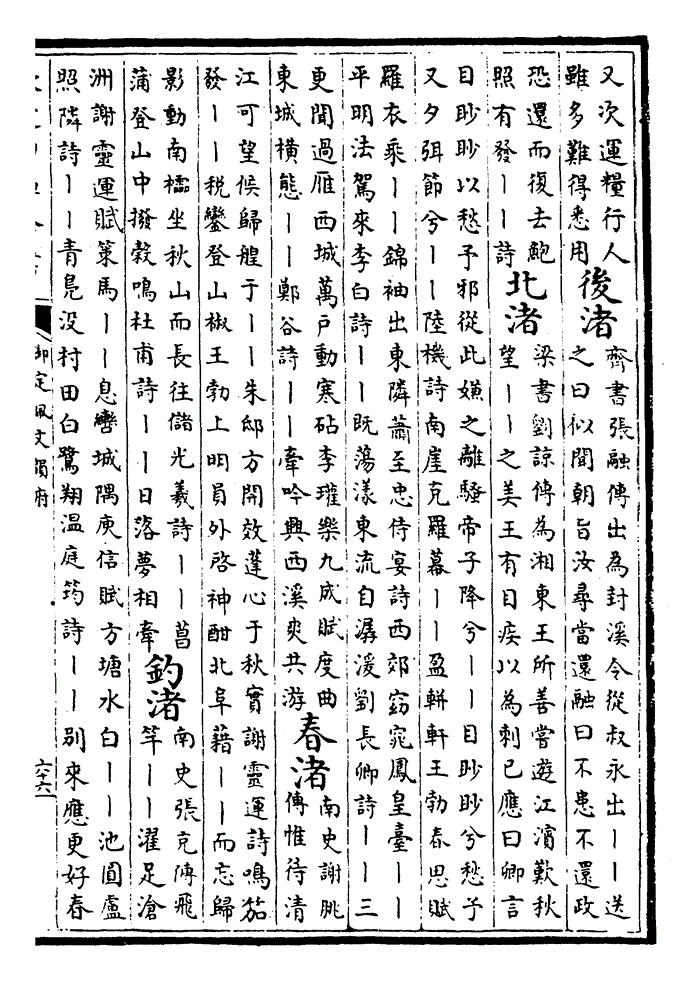 又次運糧行人
雖多難得悉用
後渚
齊書張融傳出為封溪令從叔永出丨丨送
之曰似聞朝旨汝尋當還融曰不患不還政
恐還而復去鮑
照有發丨丨詩
北渚
梁書劉諒傳為湘東王所善嘗遊江濱歎秋
望丨丨之美王有目疾以為刺已應曰卿言
目眇眇以愁予邪從此嫌之離騷帝子降兮丨丨目眇眇兮愁予
又夕弭節兮丨丨陸機詩南崖充羅幕丨丨盈軿軒王勃春思賦
羅衣乘丨丨錦袖出東隣蕭至忠侍宴詩西郊窈窕鳳皇臺丨丨
平明法駕來李白詩丨丨既蕩漾東流自潺湲劉長卿詩丨丨三
更聞過雁西城萬戶動寒砧李瓘樂九成賦度曲
東城橫態丨丨鄭谷詩丨丨牽吟興西溪爽共游
春渚
南史謝朓
傳惟待清
江可望候歸艎于丨丨朱邸方開效蓬心于秋實謝靈運詩鳴笳
發丨丨稅鑾登山椒王勃上明員外啓神酣北阜藉丨丨而忘歸
影動南櫺坐秋山而長往儲光羲詩丨丨菖
蒲登山中撥穀鳴杜甫詩丨丨日落夢相牽
釣渚
南史張充傳飛
竿丨丨濯足滄
洲謝靈運賦策馬丨丨息轡城隅庾信賦方塘水白丨丨池圓盧
照隣詩丨丨青鳧沒村田白鷺翔溫庭筠詩丨丨別來應更好春
御定佩文韻府
六十六